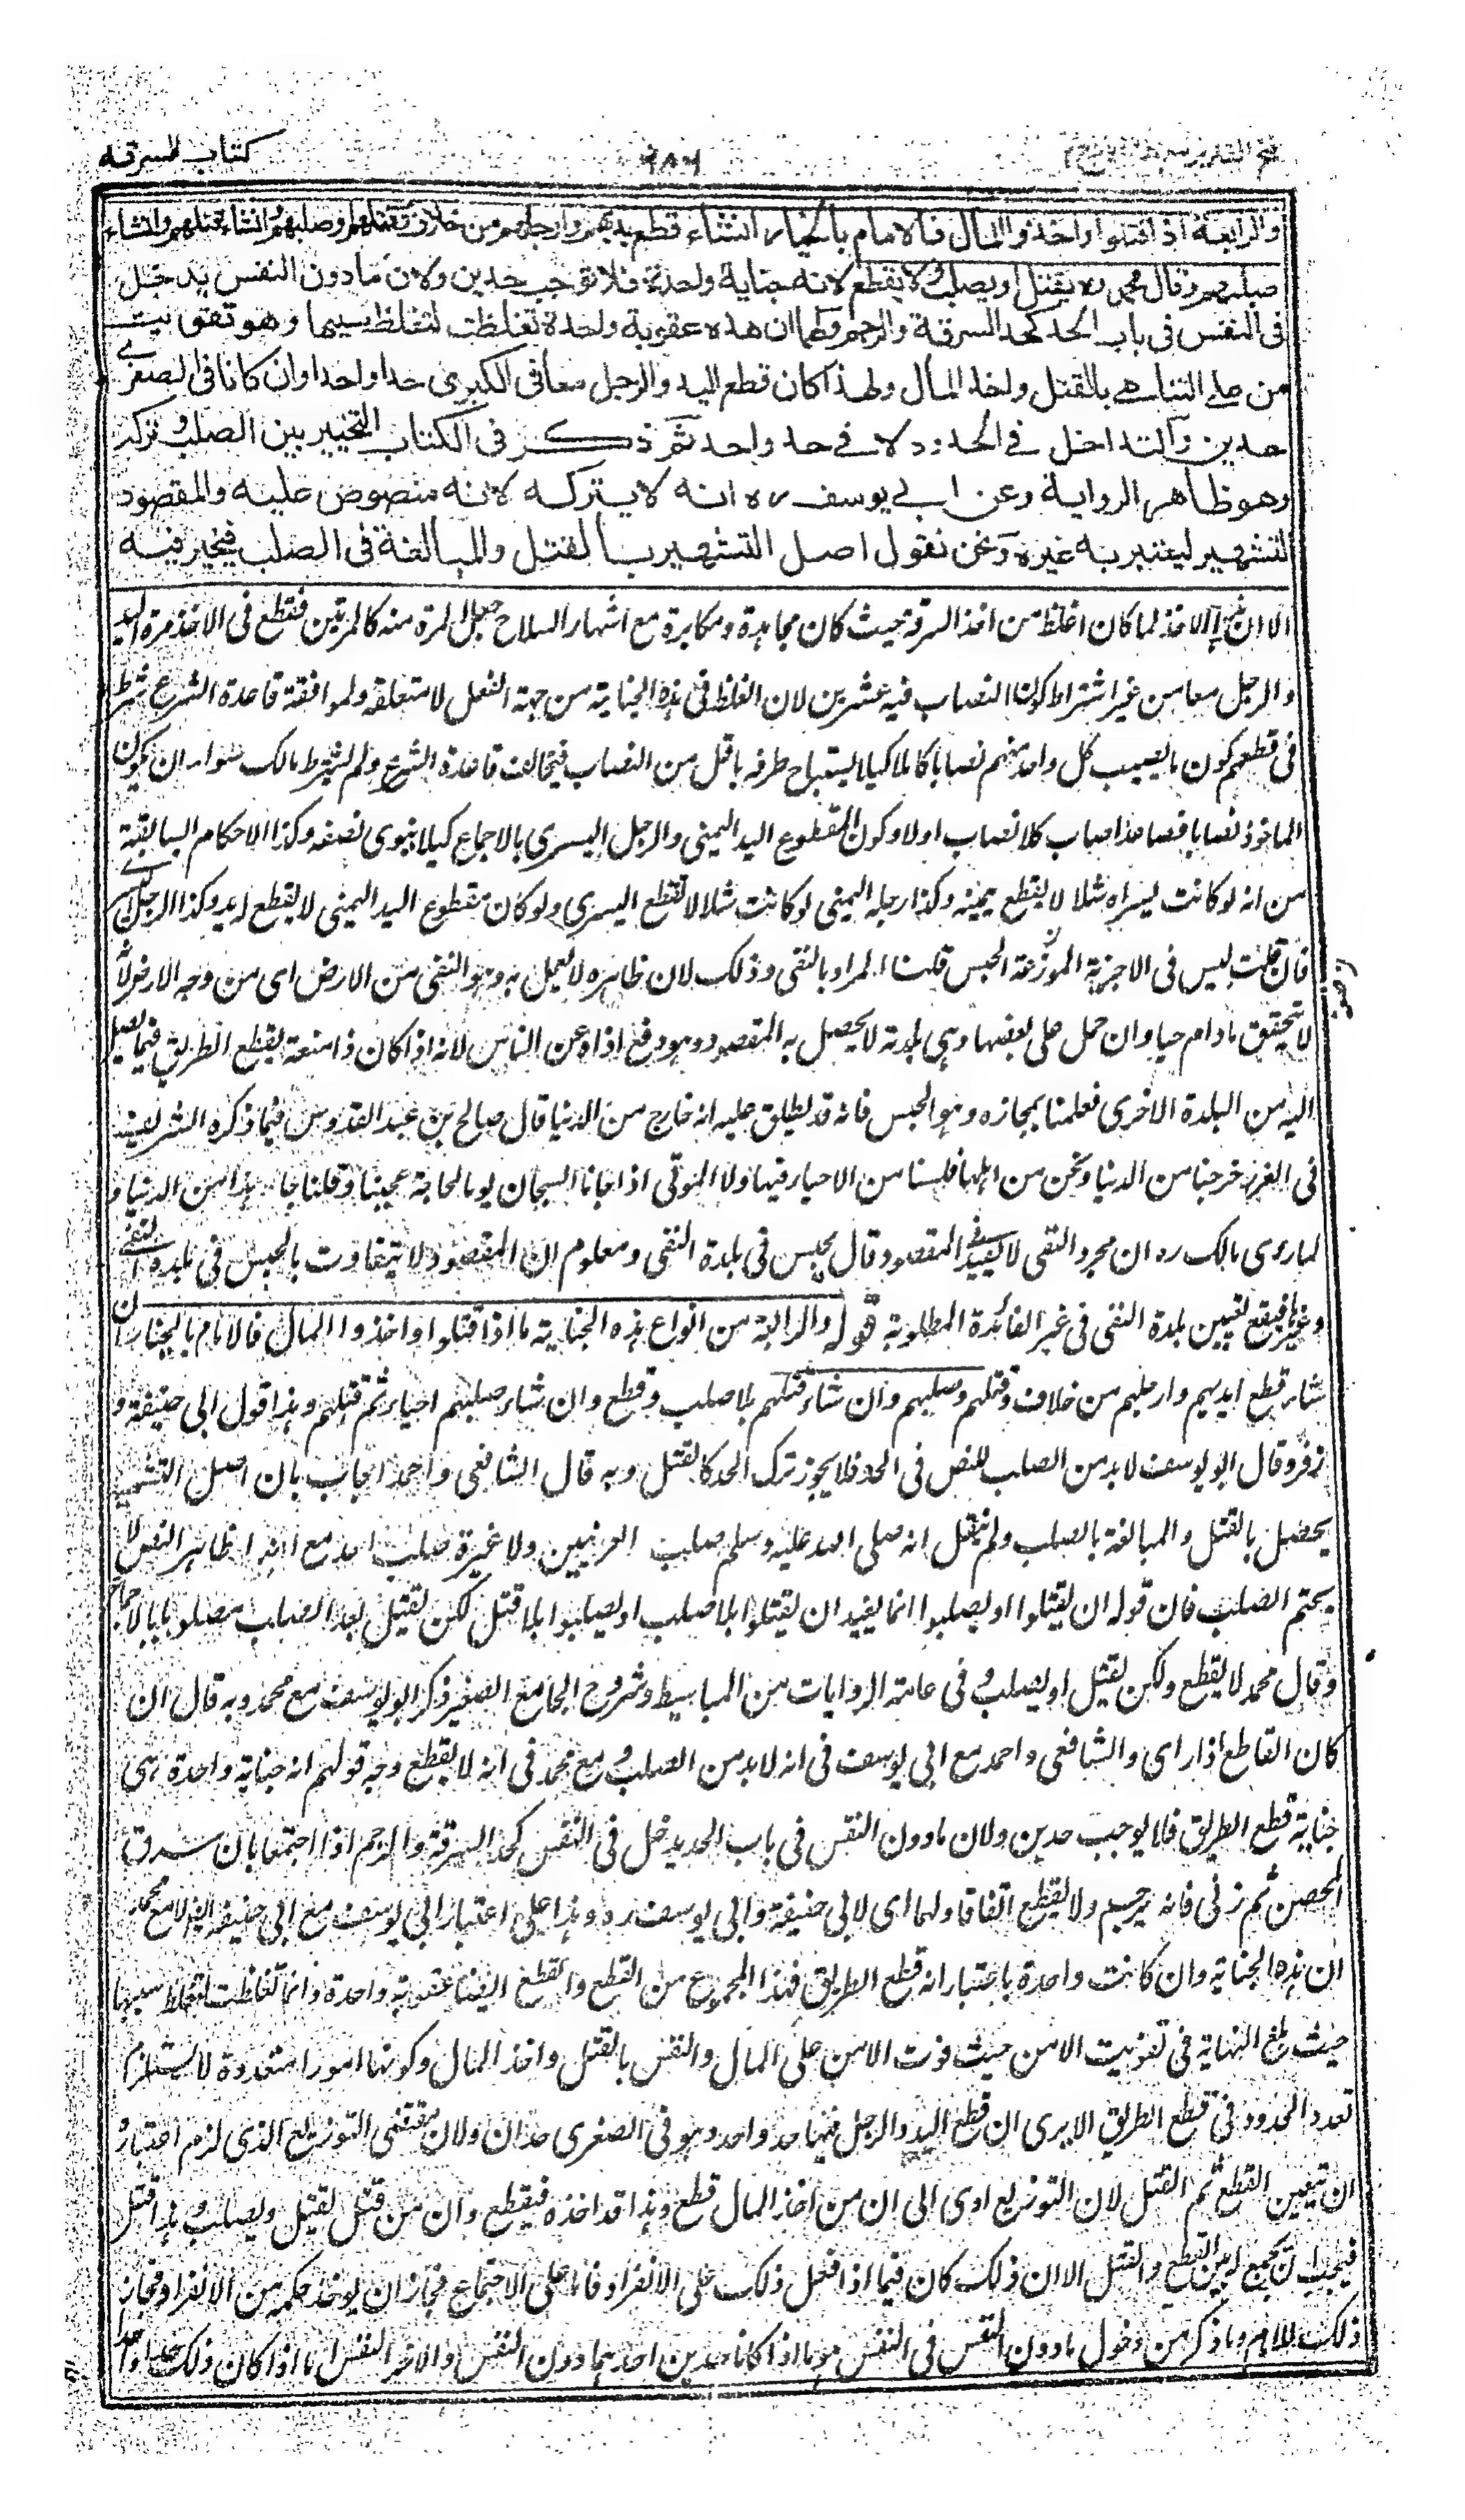 كتاب السرقة
والرابعة اذا قتلوا واخذوا المال فالامام بالخيار ان شاء قطع ايديهم وارجلهم من خلاف وقتلهم او صلبهم وان شاء قتلهم وان شاء
صلبهم وقال محمد ره يقتل او يصلب ولا يقطع لانه جناية واحدة فلا توجب حدين ولان ما دون النفس يدخل
فى النفس فى باب الحد كحد السرقة والرجم ولهما ان هذه عقوبة واحدة تغلظت لتغلظ سببها وهو تفويت
من على التناهى بالقتل واخذ المال ولهذا كان قطع اليد والرجل معا فى الكبرى حدا واحدا وان كانا فى الصغرى
حدين والتداخل فى الحدود لا فى حد واحد ثم ذكر فى الكتاب التخيير بين الصلب وتركه
وهو ظاهر الرواية وعن ابى يوسف ره انه لا يتركه لانه منصوص عليه والمقصود
التشهير ليعتبر به غيره ونحن نقول اصل التشهير بالقتل والمبالغة فى الصلب فيخير فيه
الا ان هذا الاخذ لما كان اغلظ من اخذ السرقة حيث كان مجاهرة ومكابرة مع اشهار السلاح جعل المرة منه كالمرتين فقطع فى الاخذ مرة اليد
والرجل معا من غير اشتراط كون النصاب فيه عشرين لان الغلظ فى هذه الجناية من جهة الفعل لا متعلقه ولموافقة قاعدة الشرع شرط
فى قطعهم كون ما يصيب كل واحد منهم نصابا كاملا كيلا يستباح طرفه باقل من النصاب فيخالف قاعدة الشرع ولم يشترط مالك سوا ان يكون
الماخوذ نصابا فصاعدا اصاب كلا نصاب اولا وكون المقطوع اليد اليمنى والرجل اليسرى بالاجماع كيلا ينوى نصفه وكذا الاحكام السابقة
من انه لو كانت يسراه شلا لا يقطع يمينه وكذا رجله اليمنى لو كانت شلا لا تقطع اليسرى ولو كان مقطوع اليد اليمنى لا يقطع له يد وكذا الرجل اليسرى
فان قلت ليس فى الاجزية الموزعة الحبس قلنا المراد بالنفى وذلك لان ظاهره لا يعمل به وهو النفى من الارض اى من وجه الارض لانه
لا يتحقق مادام حيا وان حمل على بعضها وهى بلدته لا يحصل به المقصود وهو دفع اذاه عن الناس لانه اذا كان ذا منعة يقطع الطريق فيما يصير
اليه من البلدة الاخرى فعلمنا بمجازه وهو الحبس فانه قد يطلق عليه انه خارج من الدنيا قال صالح بن عبد القدوس فيما ذكره الشريف
فى الغرر خرجنا من الدنيا ونحن من اهلها فلسنا من الاحيار فيها ولا الموتى اذا جانا السجان يوما لحاجة عجبنا وقلنا جا هذا من الدنيا و
لما راى مالك ره ان مجرد النفى لا يفيد المقصود قال يحبس فى بلدة النفى ومعلوم ان المقصود لا يتفاوت بالحبس فى بلده النفى
وغيرها فيقع تعيين بلدة النفى فى غير الفائدة المطلوبة قوله والرابعة من انواع هذه الجناية ما اذا قتلوا واخذوا المال فالامام بالخيار ان
شار قطع ايديهم وارجلهم من خلاف وقتلهم وصلبهم وان شار قتلهم بلا صلب وقطع وان شار صلبهم احيار ثم قتلهم وهذا قول ابى حنيفة و
زفر وقال ابو يوسف لا بد من الصلب للنص فى الحد فلا يجوز ترك الحد كالقتل وبه قال الشافعى واحمد اجاب بان اصل التشهير
يحصل بالقتل والمبالغة بالصلب ولم ينقل انه صلى الله عليه وسلم صلب العرنيين ولا غيره صلب احد مع ان ظاهر النص لا
يحتم الصلب فان قوله ان يقتلوا او يصلبوا انما يفيد ان يقتلوا بلا صلب او يصلبوا بلا قتل لكن يقتل بعد الصلب مصلوبا بالاجماع
وقال محمد لا يقطع ولكن يقتل او يصلب وفى عامة الروايات من المباسيط وشروح الجامع الصغير ذكر ابو يوسف مع محمد وبه قال ان
كان القاطع اذا راى والشافعى واحمد مع ابى يوسف فى انه لا بد من الصلب ومع محمد فى انه لا يقطع وجه قولهم انه جناية واحدة هى
جناية قطع الطريق فلا يوجب حدين ولان مادون النفس فى باب الحد يدخل فى النفس كحد السرقة والرجم اذا اجتمعا بان سرق
المحصن ثم زنى فانه يرجم ولا يقطع اتفاقا ولهما اى لابى حنيفة وابى يوسف ره وهذا على اعتبار ابى يوسف مع ابى حنيفة لا مع محمد
ان هذه الجناية وان كانت واحدة باعتبار انه قطع الطريق فهذا المجموع من القطع والقطع ايضا عقوبة واحدة وانما تغلظت لتغلظ سببها
حيث بلغ النهاية فى تفويت الامن حيث فوت الامن على المال والنفس بالقتل واخذ المال وكونها امورا متعددة لا يستلزم
تعدد الحدود فى قطع الطريق الا يرى ان قطع اليد والرجل فيها حد واحد وهو فى الصغرى حدان ولان مقتضى التوزيع الذى لزم اعتباره
ان يتعين القطع ثم القتل لان التوزيع ادى الى ان من اخذ المال قطع وهذا قد اخذه فيقطع وان من قتل يقتل ويصلب وهذا قتل
فيجب ان يجمع بين القطع والقتل الا ان ذلك كان فيما اذا فعل ذلك على الانفراد فاما على الاجتماع فجاز ان يوخذ حكمه من الانفراد فجاز
ذلك للامام وما ذكر من دخول مادون النفس فى النفس هو ما اذا كانا حدين احدهما دون النفس والاخر النفس اما اذا كان ذلك حدا واحدا